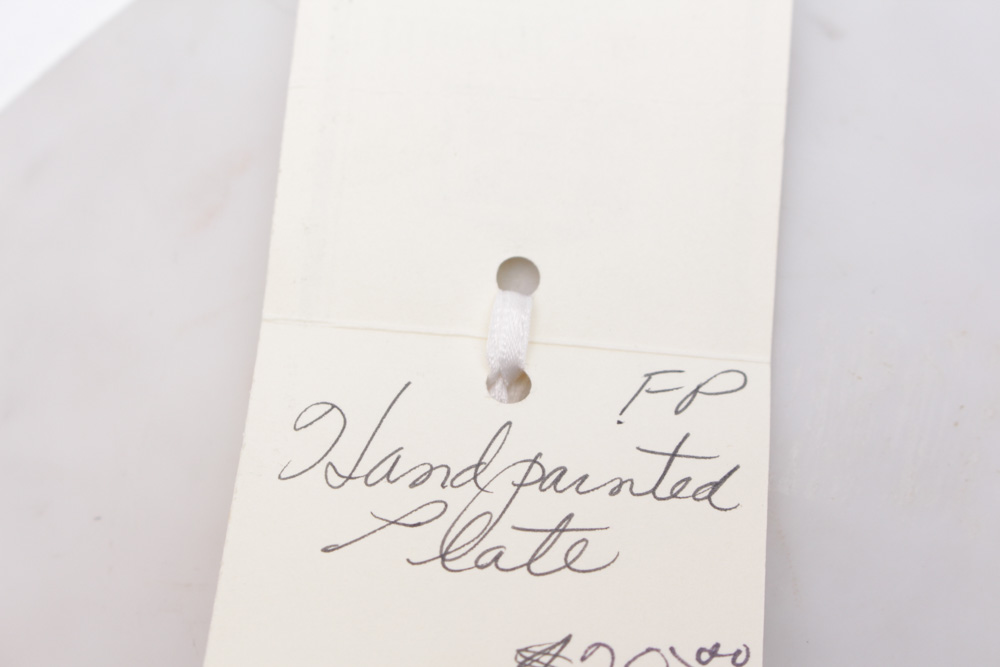 FP
Handpainted
Plate